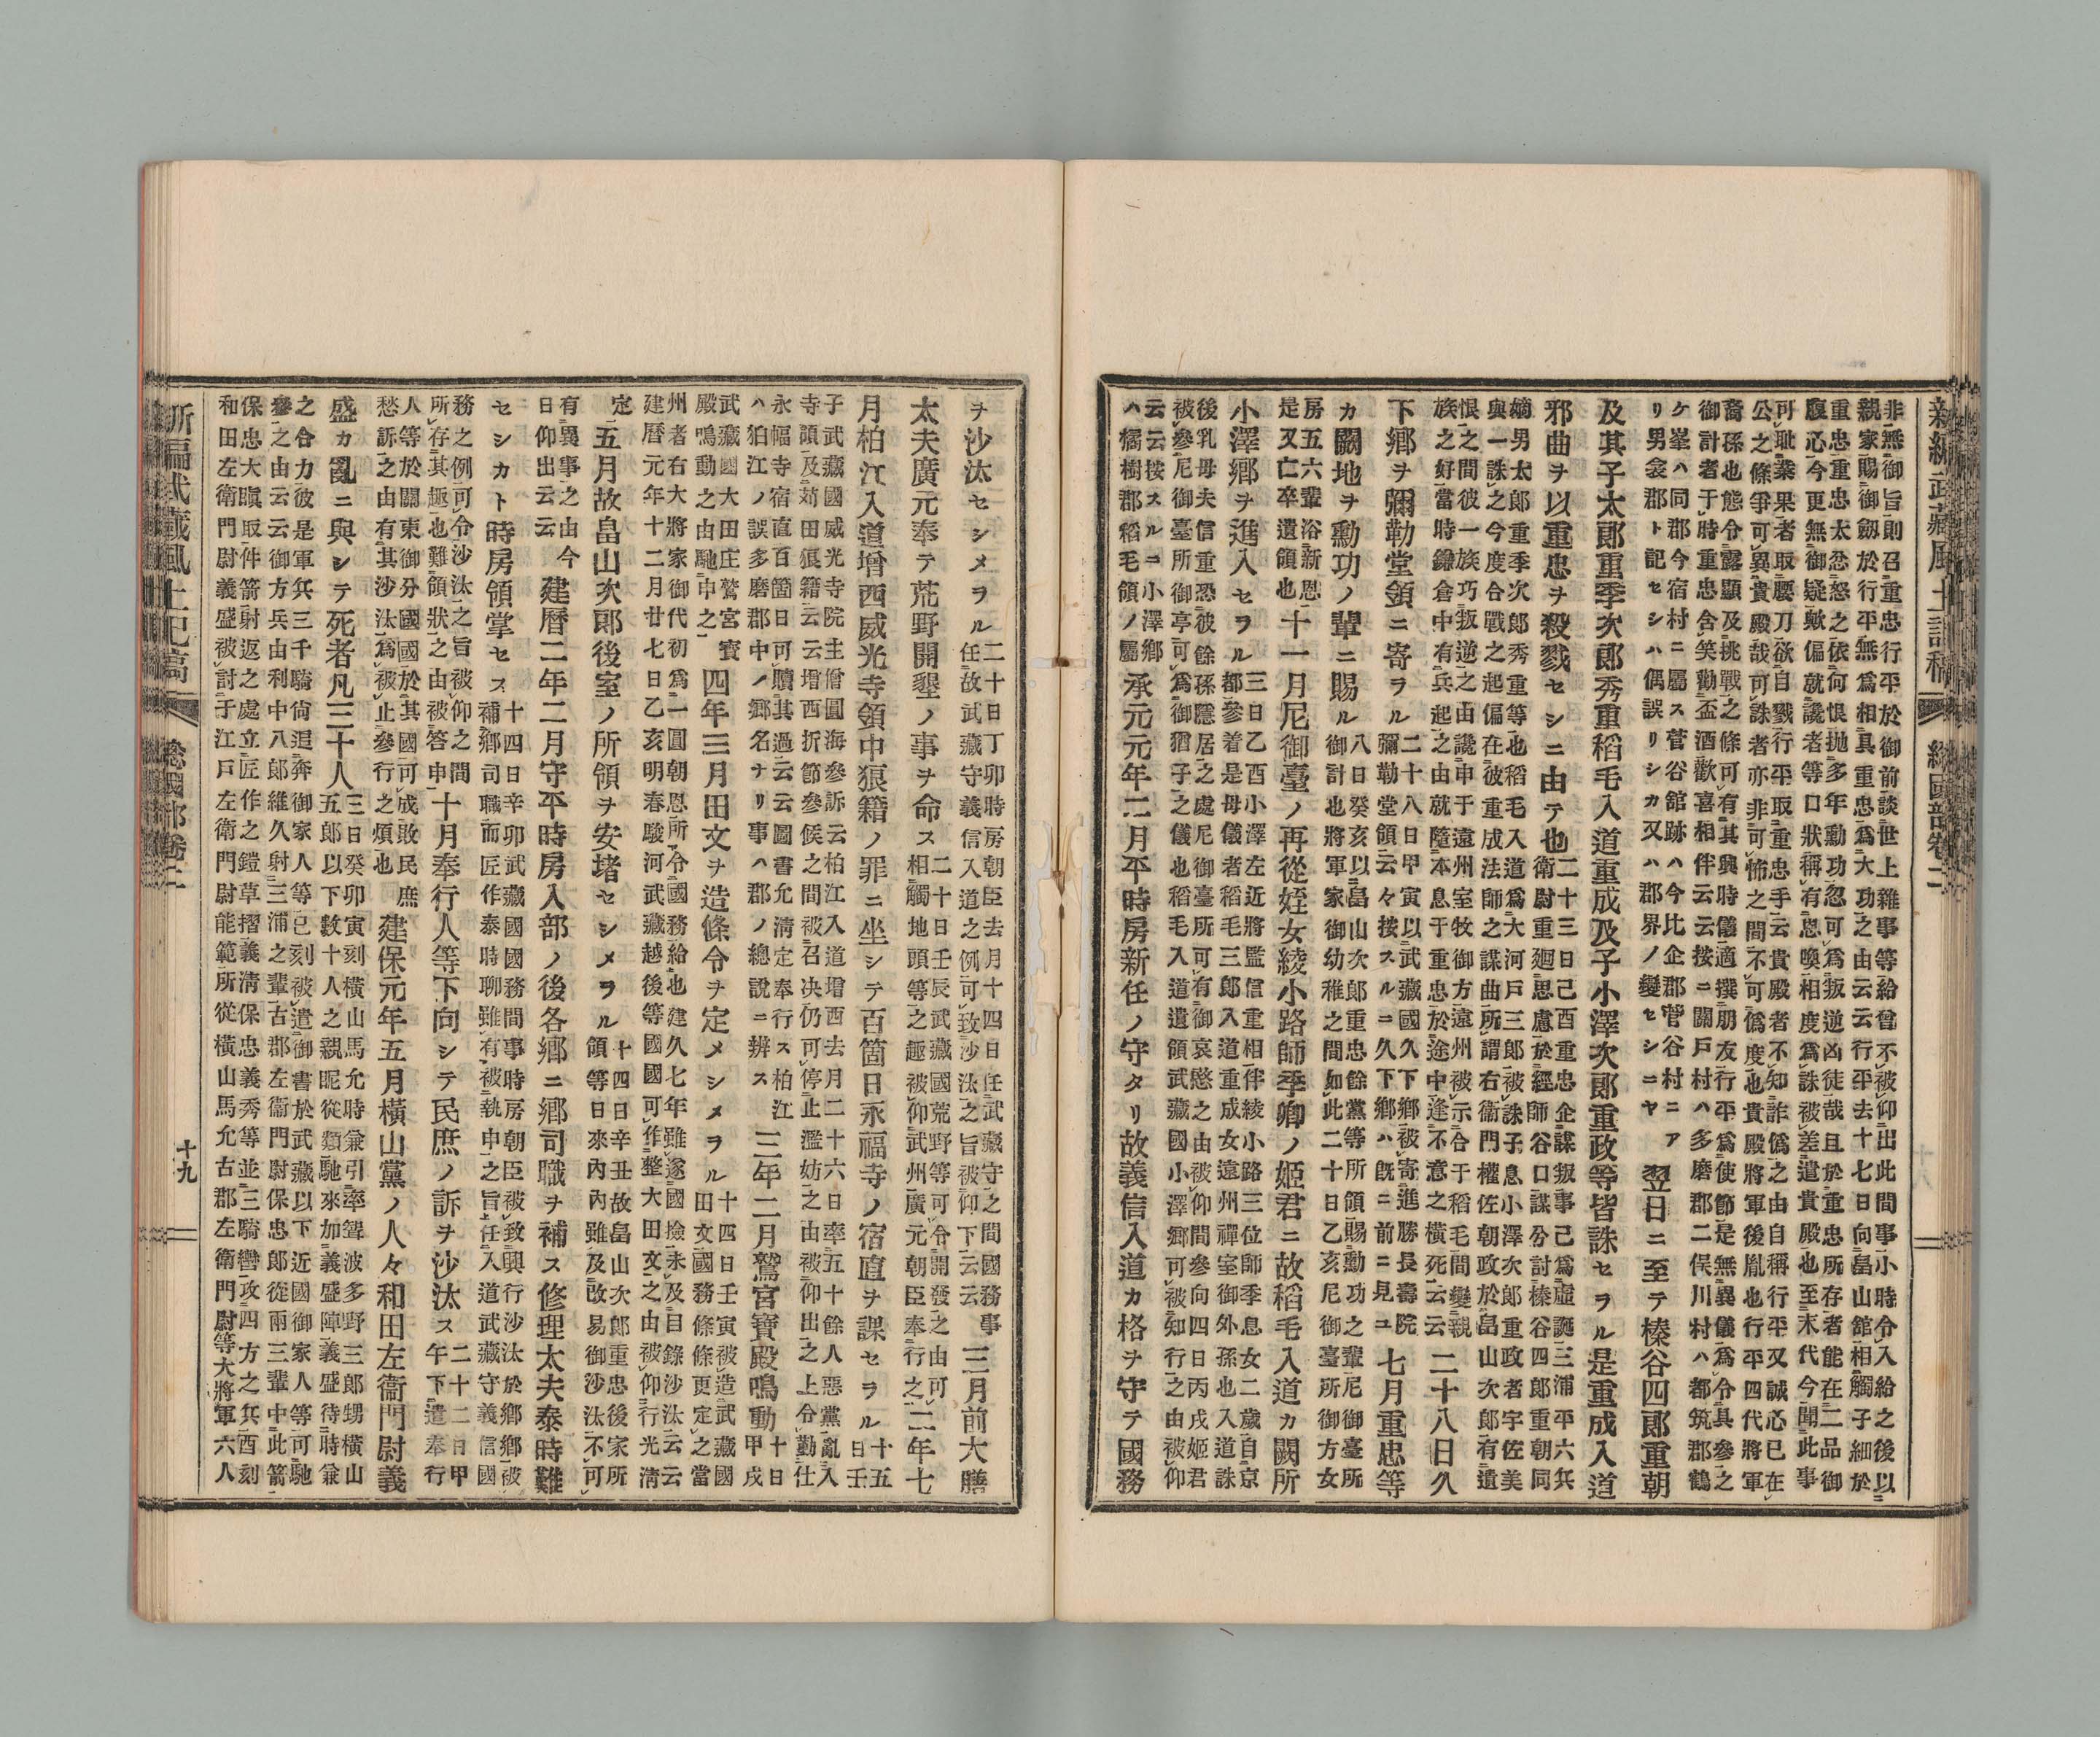 新編武藏風土記稿 總國部卷二
非無御旨則召重忠行平於御前談世上雜事等給曾不被仰出此間事小時令入給之後以
親家賜御劔於行平無為相具重忠為大功之由云云行平去十七日向畠山館相觸子細於
重忠重忠太忿怒之依何恨抛多年勳功忽可為叛逆凶徒哉且於重忠所存者能在二品御
腹心今更無御疑歟偏就讒者等口狀稱有恩喚相度為誅被差遣貴殿也至末代今聞此事
可耻業果者取腰刀欲自戮行平取重忠手云貴殿者不知詐僞之由自稱行平又誠心已在
公之條爭可異貴殿哉可誅者亦非可怖之間不可僞度也貴殿將軍後胤也行平四代將軍
裔孫也態令露顯及挑戰之條可有其興時儀適撰朋友行平為使節是無異儀為令具參之
御計者于時重忠含笑動盃酒歡喜相伴云云按ニ關戸村ハ多磨郡二俣川村ハ都筑郡鶴
ケ峯ハ同郡今宿村ニ屬ス菅谷館跡ハ今比企郡菅谷村ニア
リ男衾郡ト記セシハ偶誤リシカ又ハ郡界ノ變セシニヤ
翌日ニ至テ榛谷四郎重朝
及其子太郎重季次郎秀重稻毛入道重成及子小澤次郎重政等皆誅セラル是重成入道
邪曲ヲ以重忠ヲ殺戮セシニ由テ也
二十三日己酉重忠企謀叛事已為虚誕三浦平六兵
衛尉重廻思慮於經師谷口謀分討榛谷四郎重朝同
嫡男太郎重季次郎秀重等也稻毛入道為大河戸三郎被誅子息小澤次郎重政者宇佐美
與一誅之今度合戰之起偏在彼重成法師之謀曲所謂右衛門權佐朝政於畠山次郎有遺
恨之間彼一族巧叛逆之由讒申于遠州室牧御方遠州被示合于稻毛間變親
族之好當時鎌倉中有兵起之由就隨本息于重忠於途中逢不意之橫死云云
二十八日久
下鄉ヲ彌勒堂領ニ寄ラル
二十八日甲寅以武藏國久下鄉被寄進勝長壽院
彌勒堂領云々按スルニ久下鄉ハ既ニ前ニ見ユ
七月重忠等
カ闕地ヲ勳功ノ輩ニ賜ル
八日癸亥以畠山次郎重忠餘黨等所領賜勳功之輩尼御臺所
御計也將軍家御幼稚之間如此二十日乙亥尼御臺所御方女
房五六輩浴新恩
是又亡卒遺領也
十一月尼御臺ノ再從姪女綾小路師季卿ノ姬君ニ故稻毛入道カ闕所
小澤鄉ヲ進入セラル
三日乙酉小澤左近將監信重相伴綾小路三位師季息女二歲自京
都參着是母儀者稻毛三郎入道重成女遠州禪室御外孫也入道誅
後乳母夫信重恐彼餘孫隱居之處尼御臺所可有御哀愍之由被仰間參向四日丙戌姬君
被參尼御臺所御亭可為御猶子之儀也稻毛入道遺領武藏國小澤鄉可被知行之由被仰
云云按スルニ小澤鄉
ハ橘樹郡稻毛領ノ屬
承元元年二月平時房新任ノ守タリ故義信入道カ格ヲ守テ國務
ヲ沙汰セシメラル
二十日丁卯時房朝臣去月十四日任武藏守之間國務事
任故武藏守義信入道之例可致沙汰之旨被仰下云云
三月前大膳
太夫廣元奉テ荒野開墾ノ事ヲ命ス
二十日壬辰武藏國荒野等可令開發之由可
相觸地頭等之趣被仰武州廣元朝臣奉行之
二年七
月柏江入道增西威光寺領中狼籍ノ罪ニ坐シテ百箇日永福寺ノ宿直ヲ課セラル
十五
日壬
子武藏國威光寺院主僧圓海參訴云柏江入道增西去月二十六日率五十餘人惡黨亂入
寺領及苅田狼籍云云增西折節參候之間被召决仍可停止濫妨之由被仰出之上令勤仕
永幅寺宿直百箇日可贖其過云云圖書允淸定奉行ス柏江
ハ狛江ノ誤多磨郡中ノ鄉名ナリ事ハ郡ノ總說ニ辨ス
三年二月鷲宮寶殿鳴動
十日
甲戌
武藏國大田庄鷲宮寶
殿鳴動之由馳申之
四年三月田文ヲ造條令ヲ定メシメラル
十四日壬寅被造武藏國
田文國務條條更定之當
州者右大將家御代初為一圓朝恩所令國務給也建久七年雖遂國撿未及目錄沙汰云云
建曆元年十二月廿七日乙亥明春駿河武藏越後等國國可作整大田文之由被仰行光淸
定
五月故畠山次郎後室ノ所領ヲ安堵セシメラル
十四日辛丑故畠山次郎重忠後家所
領等日來內內雖及改易御沙汰不可
有異事之由今
日仰出云云
建曆二年二月守平時房入部ノ後各鄉ニ鄉司職ヲ補ス修理太夫泰時難
セシカト時房領掌セス
十四日辛卯武藏國國務間事時房朝臣被致興行沙汰於鄉鄉被
補鄉司職而匠作泰時聊雖有被執申之旨任入道武藏守義信國
務之例可令沙汰之旨被仰之間
所存其趣也難領狀之由被答申
十月奉行人等下向シテ民庶ノ訴ヲ沙汰ス
二十二日甲
午下遣奉行
人等於關東御分國國於其國可成敗民庶
愁訴之由有其沙汰為被止參行之煩也
建保元年五月橫山黨ノ人々和田左衞門尉義
盛カ亂ニ與シテ死者凡三十人
三日癸卯寅刻橫山馬允時兼引率聟波多野三郎甥橫山
五郎以下數十人之親昵從類馳來加義盛陣義盛待時兼
之合力彼是軍兵三千騎尙追奔御家人等已刻被遣御書於武藏以下近國御家人等可馳
參之由云云御方兵由利中八郎維久射三浦之輩古郡左衞門尉保忠郎從兩三輩中此箭
保忠大瞋取件箭射返之處立匠作之鎧草摺義淸保忠義秀等並三騎轡攻四方之兵酉刻
和田左衛門尉義盛被討于江戸左衛門尉能範所從橫山馬允古郡左衛門尉等大將軍六人
新編武藏風土記稿 總國部卷二 十九